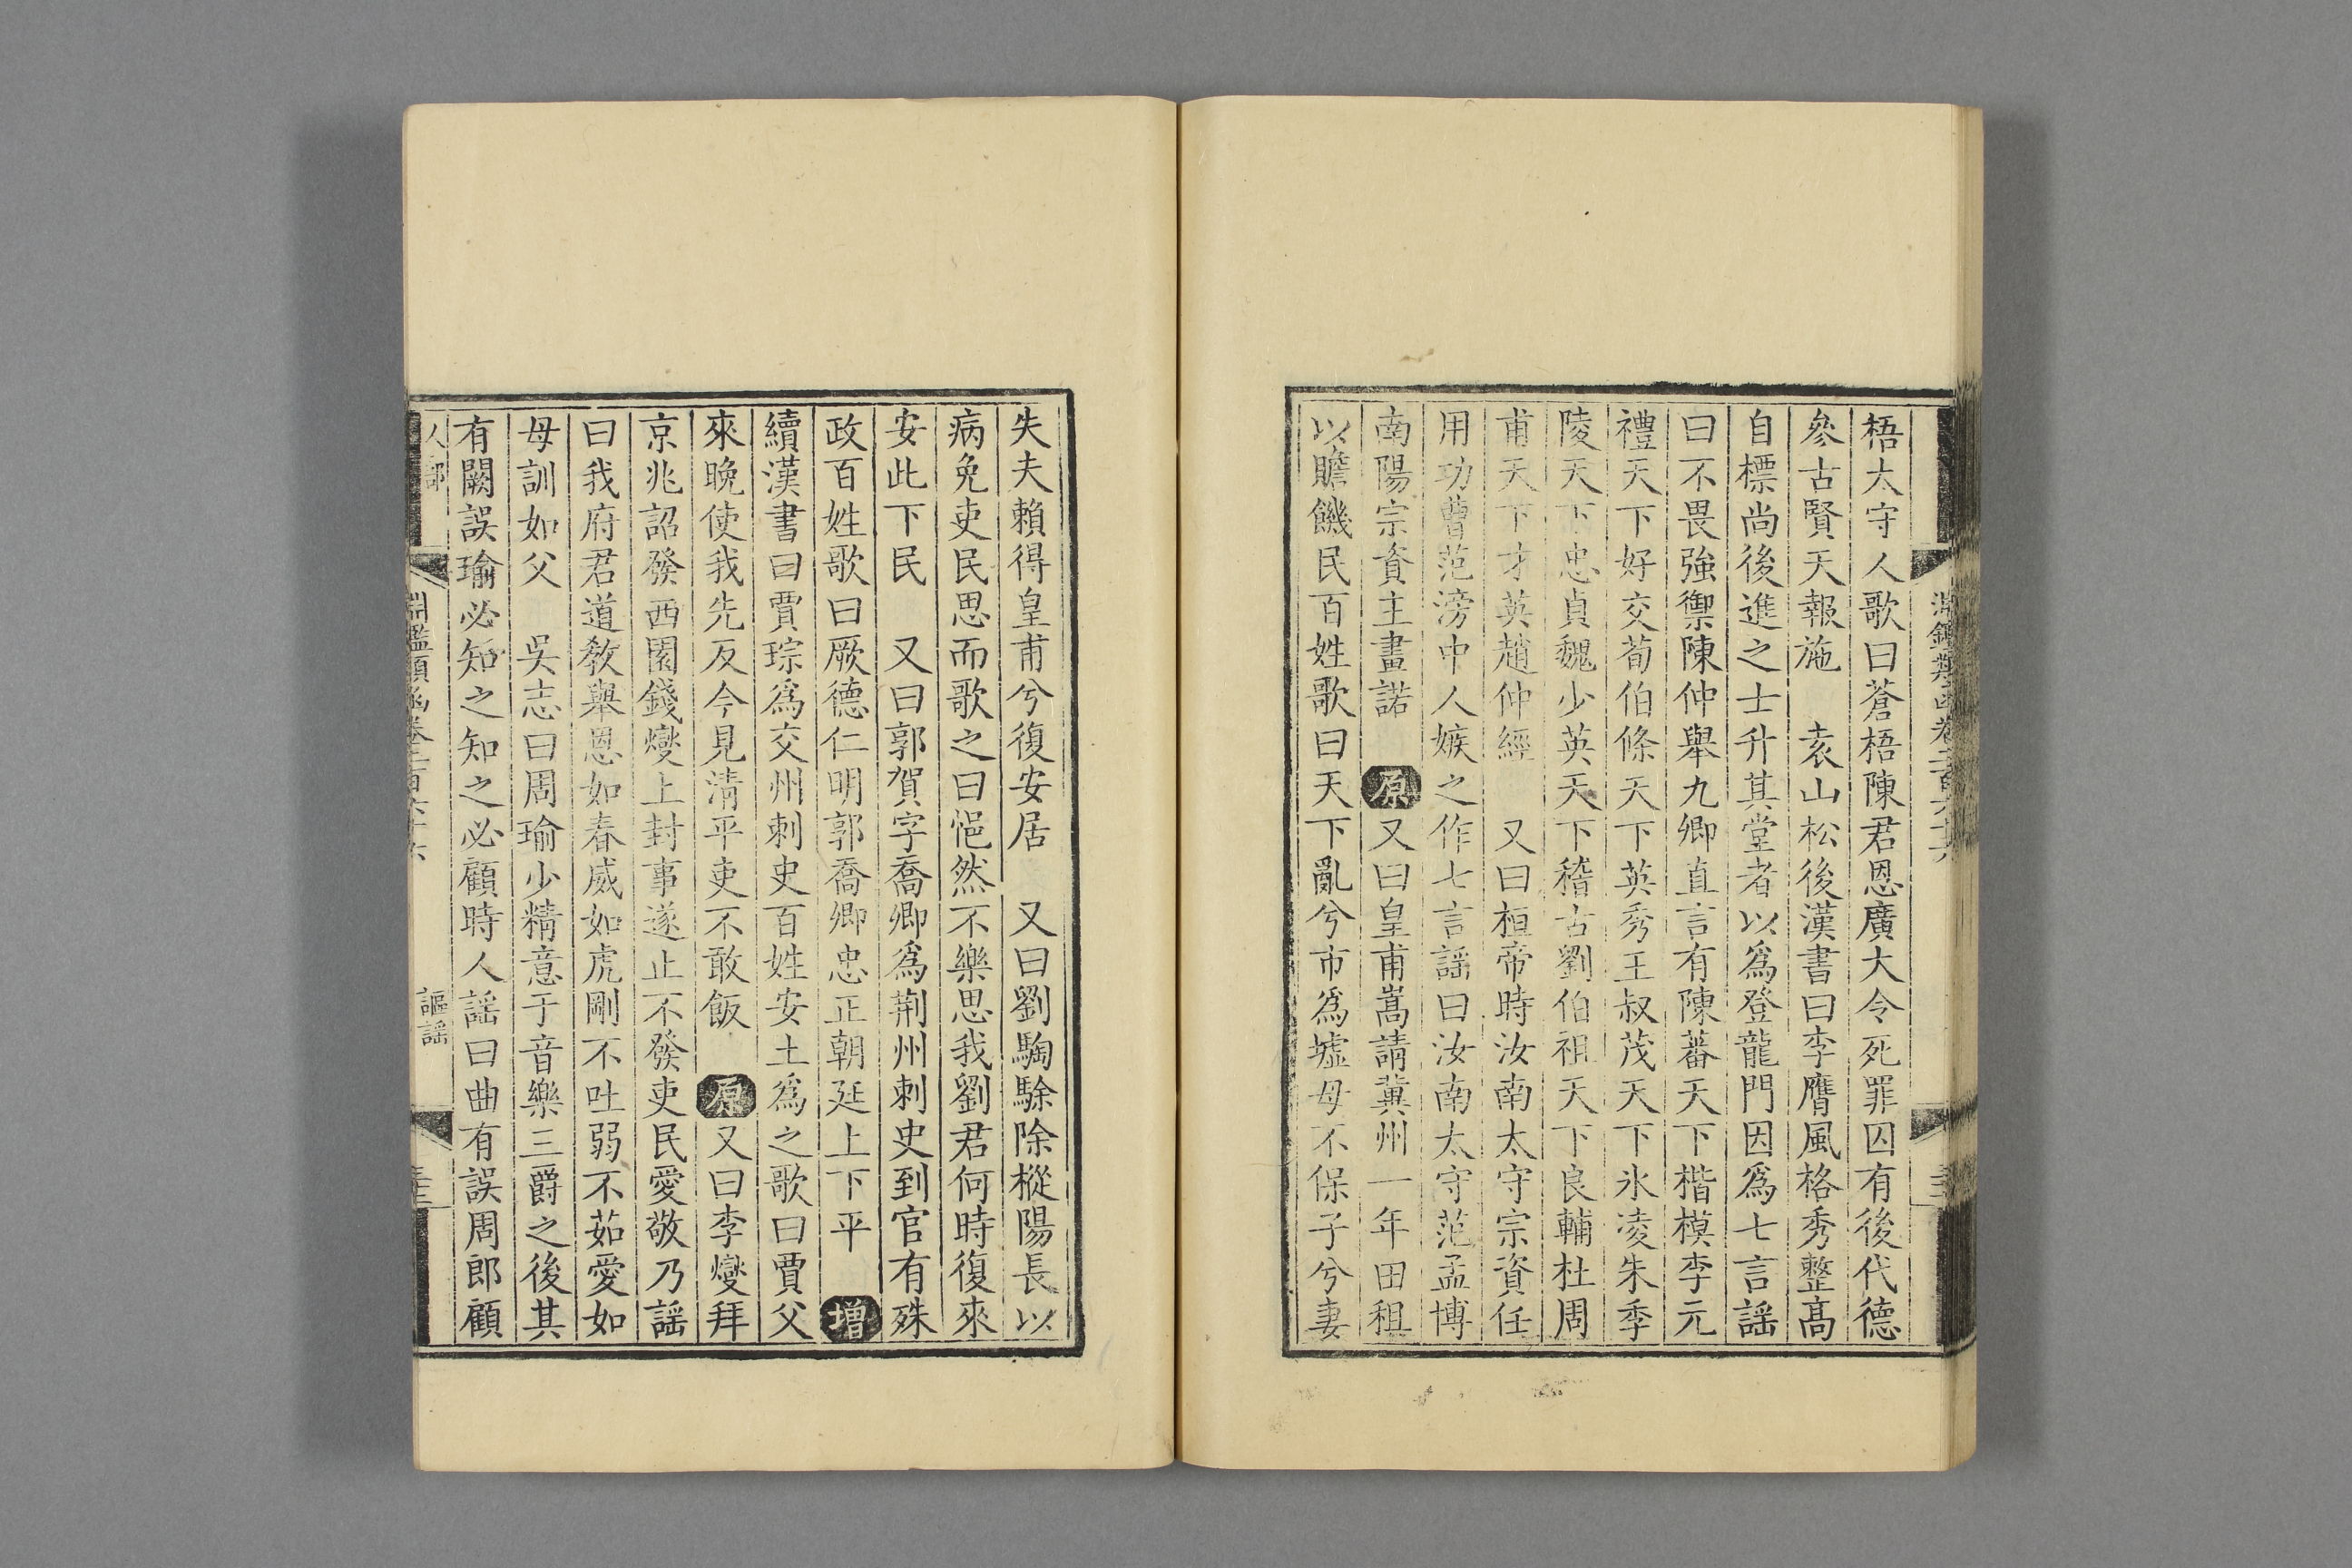 梧太守人歌曰蒼梧陳君恩廣大令死罪囚有後代德
參古賢天報施　袁山松後漢書曰李膺風格秀整髙
自標尚後進之士升其堂者以爲登龍門因爲七言謡
曰不畏強禦陳仲舉九卿直言有陳蕃天下楷模李元
禮天下好交荀伯條天下英秀王叔茂天下氷凌朱季
陵天下忠貞魏少英天下稽古劉伯祖天下良輔杜周
甫天下才英趙仲經　又曰桓帝時汝南太守宗資任
用功曹范滂中人嫉之作七言謡曰汝南太守范孟博
南陽宗資主畫諾　原又曰皇甫嵩請冀州一年田租
以贍饑民百姓歌曰天下亂兮市爲墟母不保子兮妻
失夫賴得皇甫兮復安居　又曰劉騊駼除樅陽長以
病免吏民思而歌之曰悒然不樂思我劉君何時復來
安此下民　又曰郭賀字喬卿爲荆州刺史到官有殊
政百姓歌曰厥德仁明郭喬卿忠正朝廷上下平　增
續漢書曰賈琮爲交州刺史百姓安土爲之歌曰賈父
來晚使我先反今見清平吏不敢飯　原又曰李燮拜
京兆詔發西園錢燮上封事遂止不發吏民愛敬乃謡
曰我府君道教舉恩如春威如虎剛不吐弱不茹愛如
母訓如父　吳志曰周瑜少精意于音樂三爵之後其
有闕誤瑜必知之知之必顧時人謡曰曲有誤周郎顧
人部
淵鑑類函卷二百六十六
謳謡